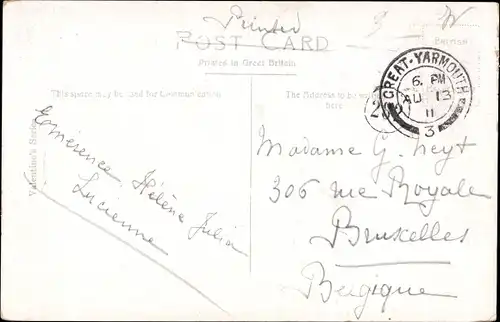 Printed
POST CARD
Printed in Great Britain
This space may be used for Communication
The Address to be written
here
Valentine's Series
GREAT-YARMOUTH
6. PM
AU 13
11
3
Emerence
Hélène Julia
Lucienne
Madame G. Heyt
306 rue Royale
Bruxelles
Belgique